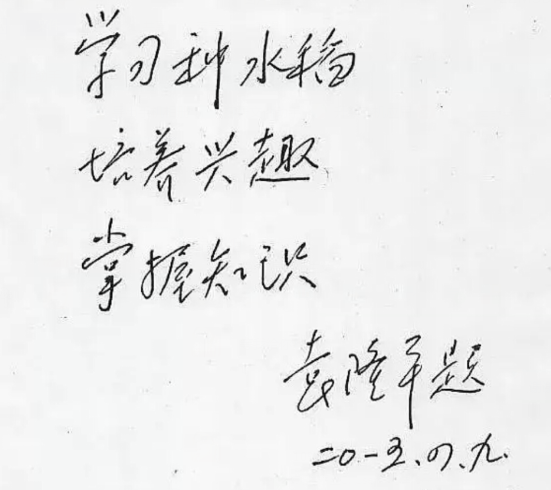 学习种水稻
培养兴趣
掌握知识
袁隆平题
二〇一五.四.九.